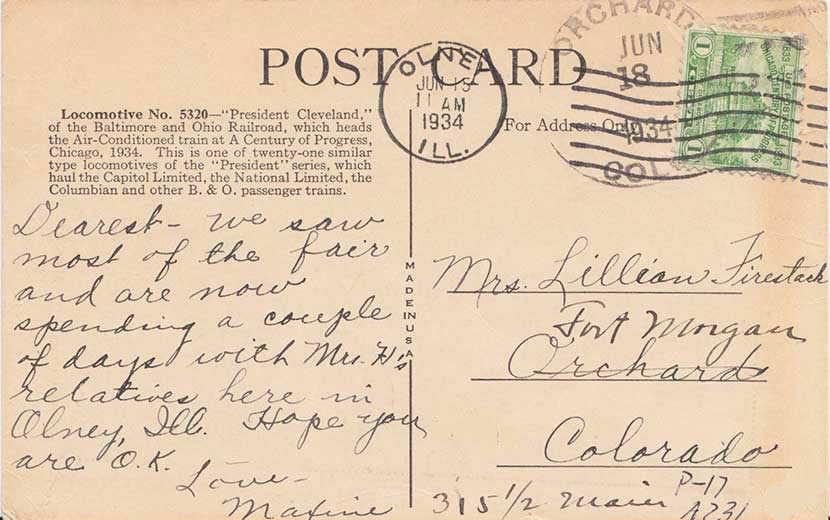 POST CARD
Locomotive No. 5320—"President Cleveland,"
of the Baltimore and Ohio Railroad, which heads
the Air-Conditioned train at A Century of Progress,
Chicago, 1934. This is one of twenty-one similar
type locomotives of the "President" series, which
haul the Capitol Limited, the National Limited, the
Columbian and other B. & O. passenger trains.
OLNEY
JUN 15
11 AM
1934
ILL.
For Address Only
ORCHARD
JUN
18
1934
COLO
1
1
Dearest - we saw
most of the fair
and are now
spending a couple
of days with Mrs. H's
relatives here in
Olney, Ill. Hope you
are O.K.
Love -
Maxine
MADE IN USA
Mrs. Lillian Firestack
Fort Morgan
Orchard
Colorado
315 1/2 Main
P-17
A231